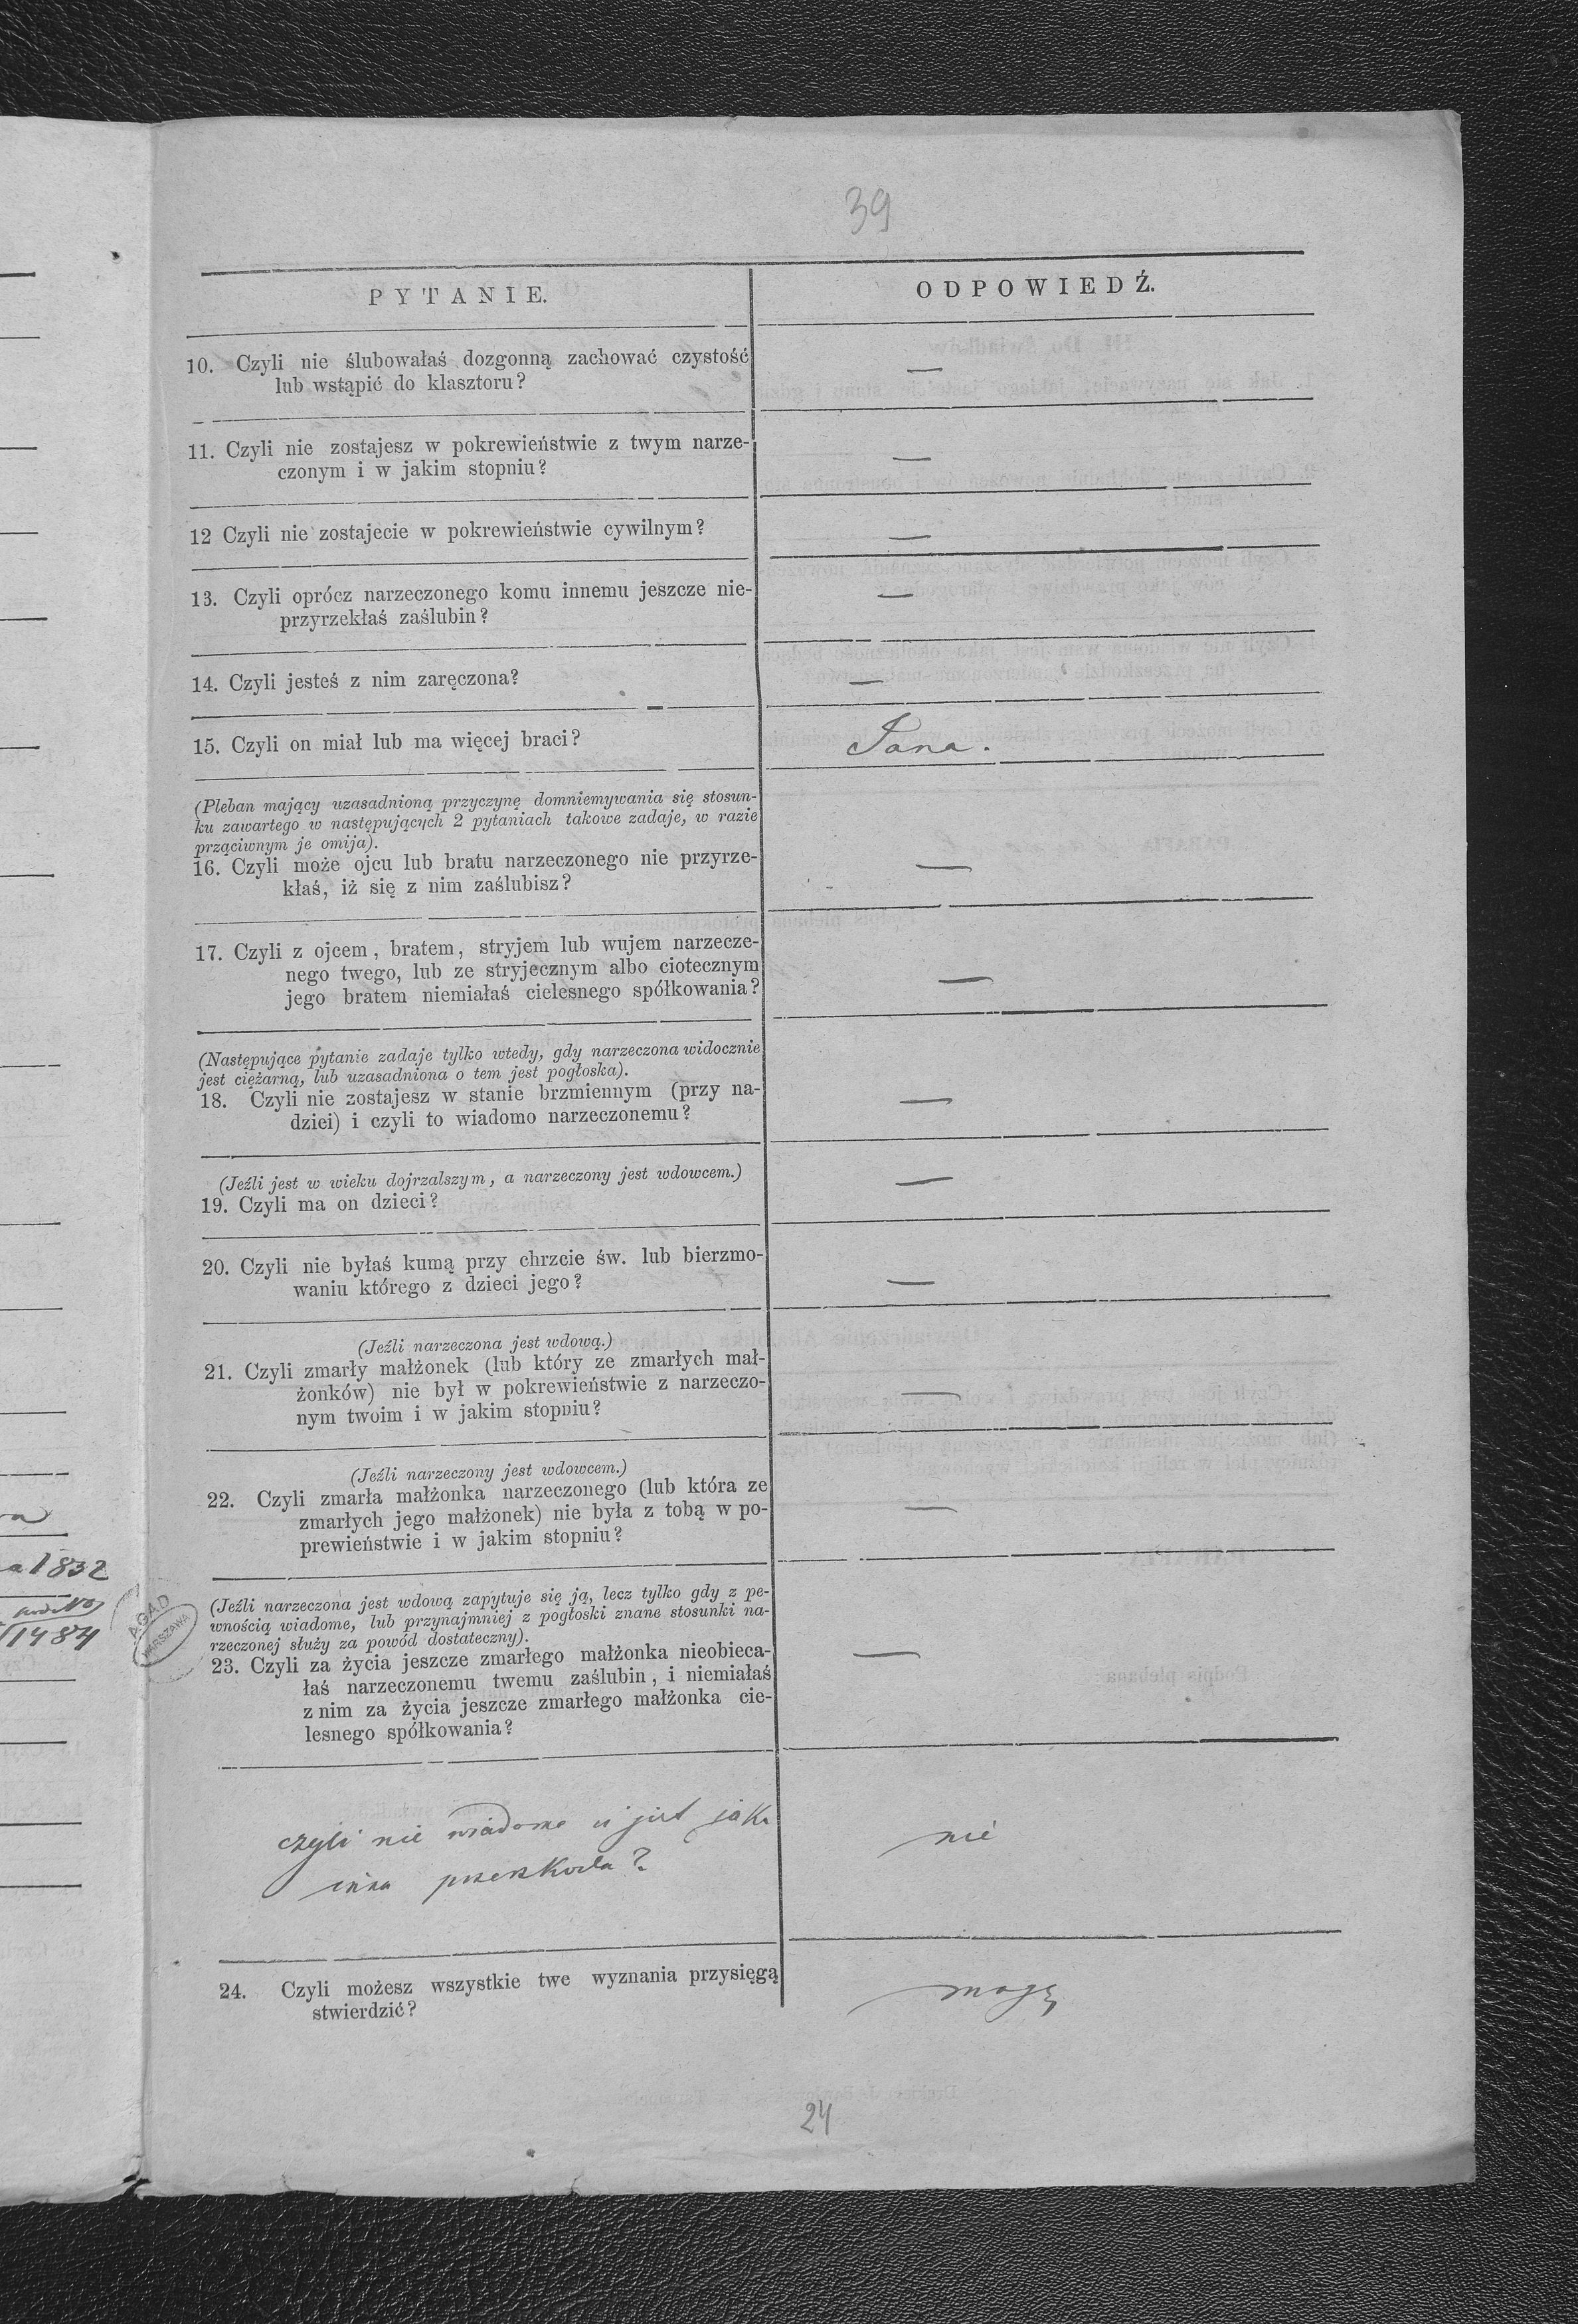 39
PYTANIE.
ODPOWIEDŹ.
10. Czyli nie ślubowałaś dozgonną zachować czystość
lub wstąpić do klasztoru?
—
11. Czyli nie zostajesz w pokrewieństwie z twym narze-
czonym i w jakim stopniu?
—
12 Czyli nie zostajecie w pokrewieństwie cywilnym?
—
13. Czyli oprócz narzeczonego komu innemu jeszcze nie-
przyrzekłaś zaślubin?
—
14. Czyli jesteś z nim zaręczona?
—
15. Czyli on miał lub ma więcej braci?
Jana.
(Pleban mający uzasadnioną przyczynę domniemywania się stosun-
ku zawartego w następujących 2 pytaniach takowe zadaje, w razie
prząciwnym je omija).
16. Czyli może ojcu lub bratu narzeczonego nie przyrze-
kłaś, iż się z nim zaślubisz?
—
17. Czyli z ojcem, bratem, stryjem lub wujem narzecze-
nego twego, lub ze stryjecznym albo ciotecznym
jego bratem niemiałaś cielesnego spółkowania?
—
(Następujące pytanie zadaje tylko wtedy, gdy narzeczona widocznie
jest ciężarną, lub uzasadniona o tem jest pogłoska).
18. Czyli nie zostajesz w stanie brzmiennym (przy na-
dziei) i czyli to wiadomo narzeczonemu?
—
(Jeźli jest w wieku dojrzalszym, a narzeczony jest wdowcem.)
19. Czyli ma on dzieci?
—
20. Czyli nie byłaś kumą przy chrzcie św. lub bierzmo-
waniu którego z dzieci jego?
—
(Jeźli narzeczona jest wdową.)
21. Czyli zmarły małżonek (lub który ze zmarłych mał-
żonków) nie był w pokrewieństwie z narzeczo-
nym twoim i w jakim stopniu?
—
(Jeźli narzeczony jest wdowcem.)
22. Czyli zmarła małżonka narzeczonego (lub która ze
zmarłych jego małżonek) nie była z tobą w po-
prewieństwie i w jakim stopniu?
—
(Jeźli narzeczona jest wdową zapytuje się ją, lecz tylko gdy z pe-
wnością wiadome, lub przynajmniej z pogłoski znane stosunki na-
rzeczonej służy za powód dostateczny).
23. Czyli za życia jeszcze zmarłego małżonka nieobieca-
łaś narzeczonemu twemu zaślubin, i niemiałaś
z nim za życia jeszcze zmarłego małżonka cie-
lesnego spółkowania?
—
czyli nie wiadome ci jest jaka
inna przeszkoda?
nie
24. Czyli możesz wszystkie twe wyznania przysięgą
stwierdzić?
mogę
24
1832
1484
AGAD
WARSZAWA